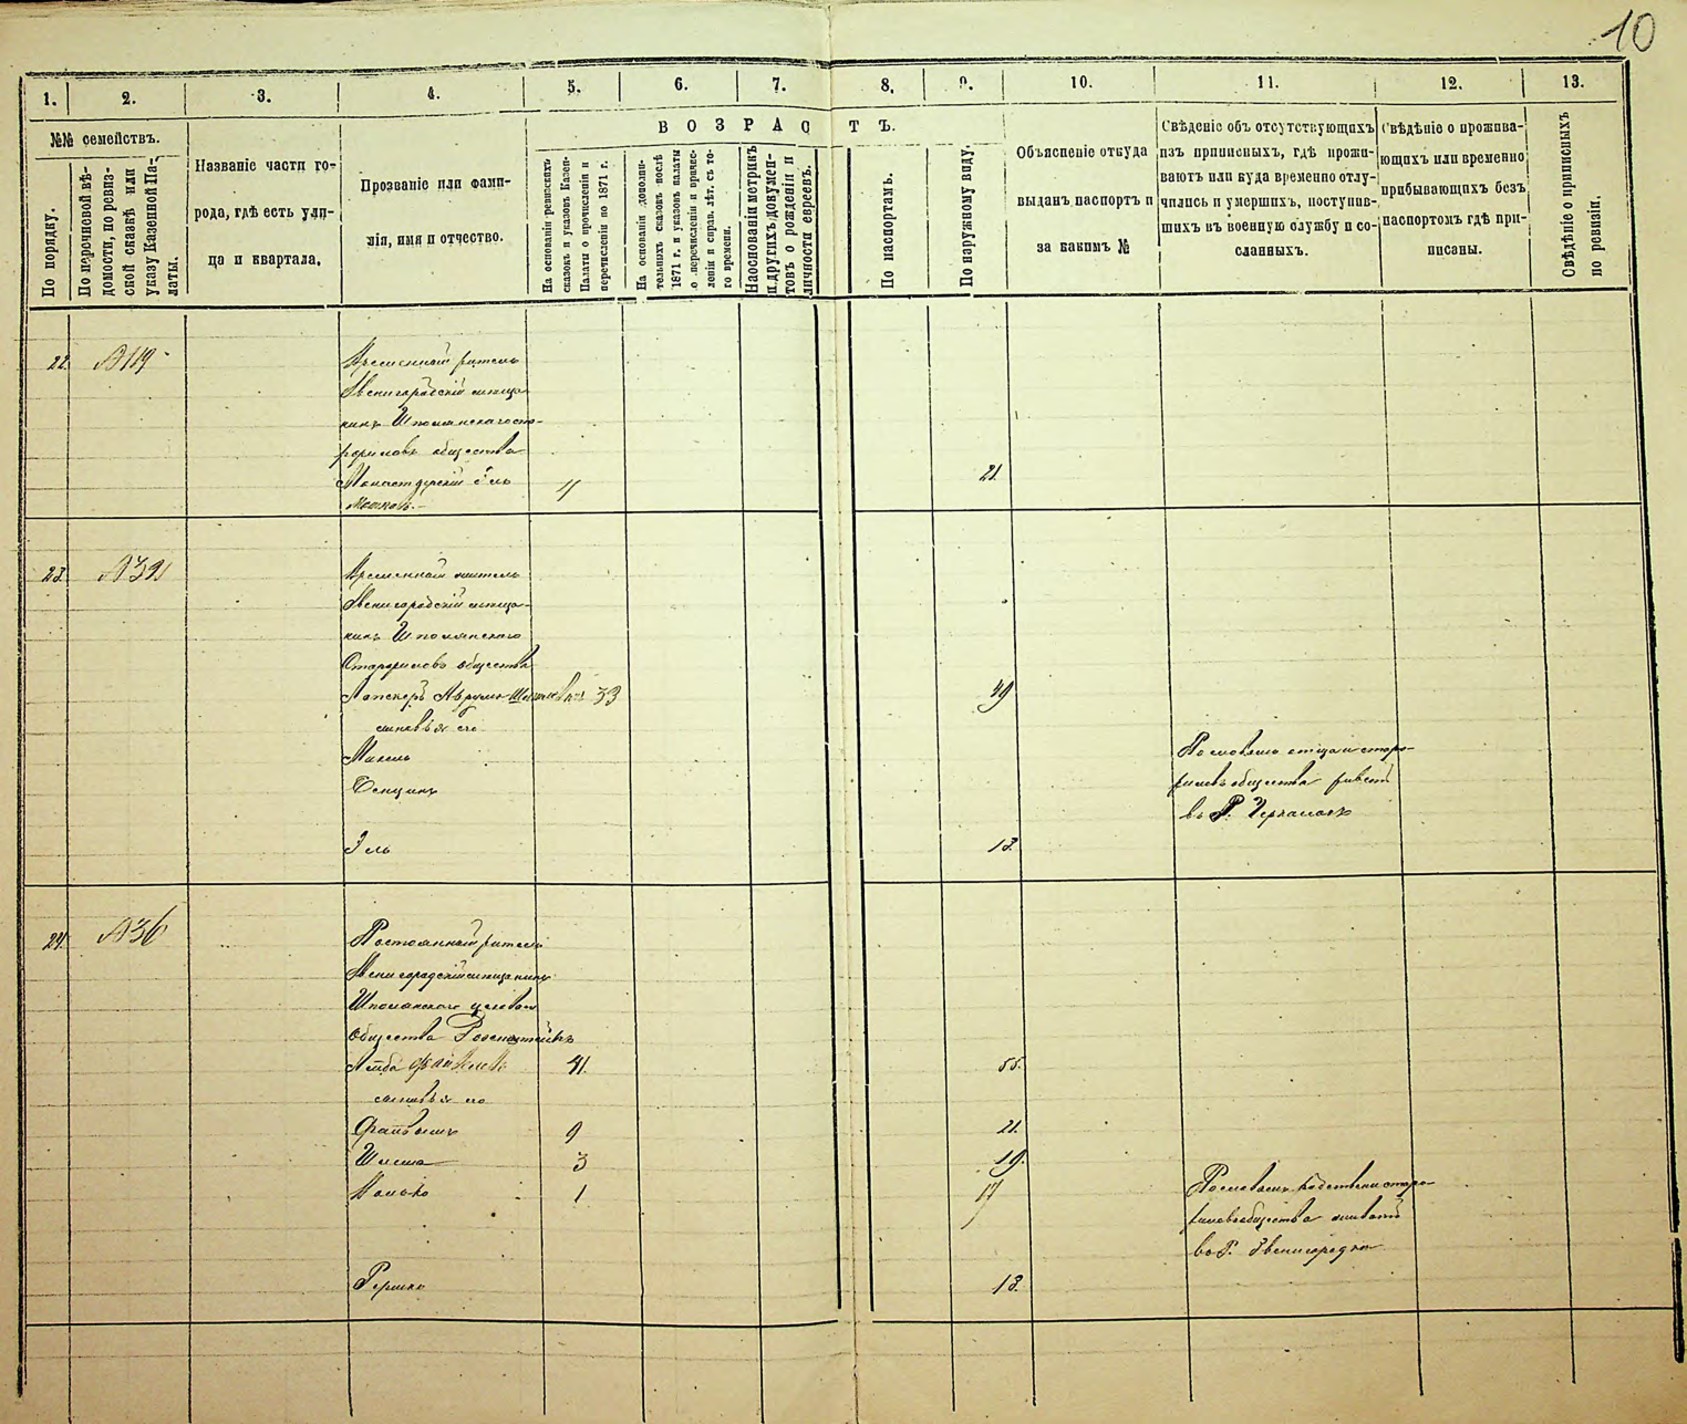 10
1. 2. 3. 4. 5. 6. 7. 8. 9. 10. 11. 12. 13.
№№ семействъ.
По порядку.
По перечневой вѣ-
домости, по ревиз-
ской сказкѣ или
указу Казенной Па-
латы.
Названіе части го-
рода, гдѣ есть ули-
ца и квартала.
Прозваніе или фами-
лія, имя и отчество.
ВОЗРАСТЪ.
На основаніи ревизскихъ
сказокъ и указовъ Казен-
Палаты о причисленіи и
перечисленіи по 1871 г.
На основаніи дополни-
тельныхъ сказокъ послѣ
1871 г. и указовъ палаты
о перечисленіи и причис-
леніи и справ. лѣт. съ то-
го времени.
На основаніи метрикъ
и другихъ докумен-
товъ о рожденіи и
личности евреевъ.
По паспортамъ.
По наружному виду.
Объясненіе откуда
выданъ паспортъ и
за какимъ №
Свѣденіе объ отсутствующихъ
изъ приписныхъ, гдѣ прожи-
ваютъ или куда временно отлу-
чились и умершихъ, поступив-
шихъ въ военную службу и со-
сланныхъ.
Свѣдѣніе о прожива-
ющихъ или временно
прибывающихъ безъ
паспортомъ гдѣ при-
писаны.
Свѣдѣніе о приписныхъ
по ревизіи.
22. №119
Временный житель
Звенигородскій мѣща-
нинъ Шполянскаго ста-
рожиловъ общества
Монастырскій Эль
21.
23. №391
Временный житель
Звенигородскій мѣща-
нинъ Шполянскаго
Старожиловъ общества
Лапскеръ Аврумъ 33 49
сыновья его
Михель
Бенціонъ
По словамъ отца и старо-
жиловъ общества живетъ
въ Г. Черкасахъ
Эль 13.
24. №36
Постоянный житель
Звенигородскій мѣщанинъ
Шполянскаго
общества Розенштейнъ
Лейба 41. 55.
сыновья его
9 21.
3 19.
1 17
По словамъ родствен. старо-
жиловъ общества живетъ
въ Г. Звенигородка
Гершко 13.